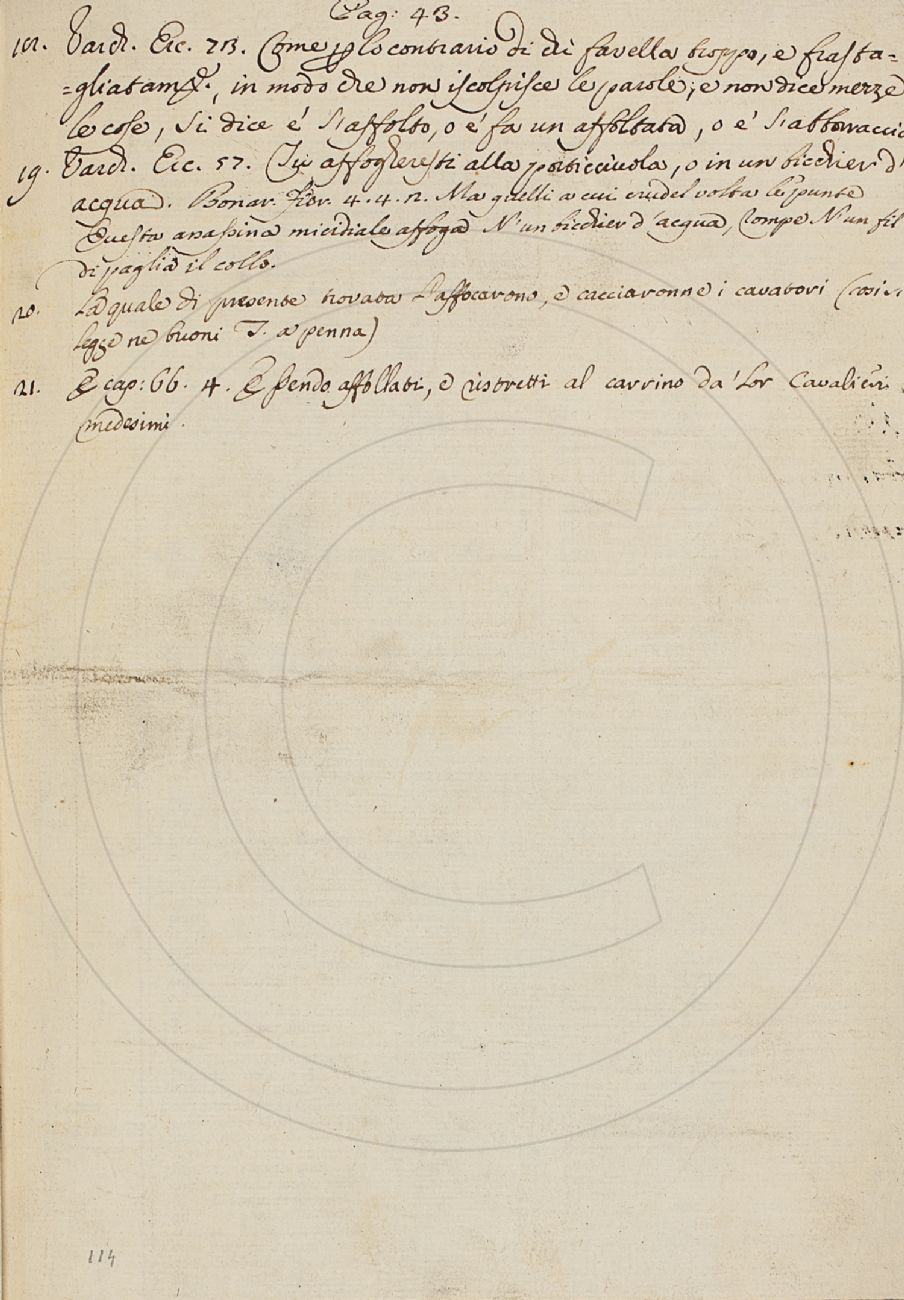 Pag: 43.
18. Varch. Erc. 78. Come p lo contrario di chi favella troppo, e frasta=
=gliatam.e, in modo che non iscolpisce le parole; e non dice mezze
le cose, si dice e' s'affolta, o e' fa un affoltata, o e' s'abborraccia
19. Varch. Erc. 57. Tu affogheresti alla porticciuola, o in un bicchier d'
acqua. Bonar. Fier. 4. 4. 2. Ma quelli a cui crudel volta le punte
Questa assassina micidiale affoga N'un bicchier d'acqua, rompe N'un fil
di paglia il collo.
20. La quale di presente trovata l'affocarono, e cacciaronne i cavatori (così si
legge ne buoni T. a penna)
21. E cap: 66. 4. Essendo affollati, e ristretti al carrino da' lor Cavalieri
medesimi.
114